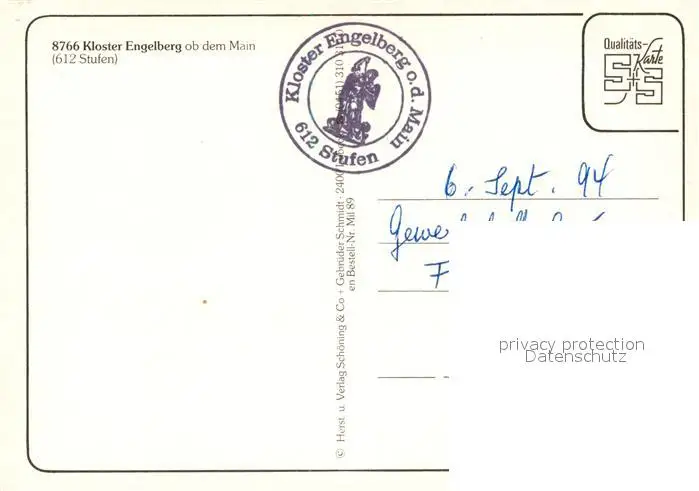 8766 Kloster Engelberg ob dem Main
(612 Stufen)
Kloster Engelberg o.d. Main
612 Stufen
Qualitäts-
Karte
S+S
6. Sept. 94
privacy protection
Datenschutz
© Herst. u. Verlag Schöning & Co + Gebrüder Schmidt · 2400
en Bestell-Nr. Mil 89